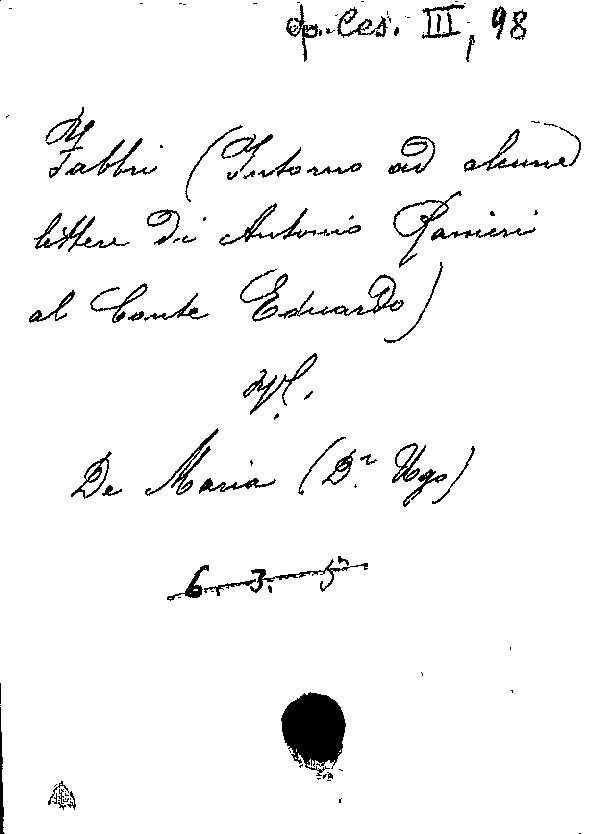 Op. Ces. III, 98
Fabbri (Intorno ad alcune
lettere di Antonio Ranieri
al Conte Eduardo)
De Maria (Dr. Ugo)
6. 3. 5